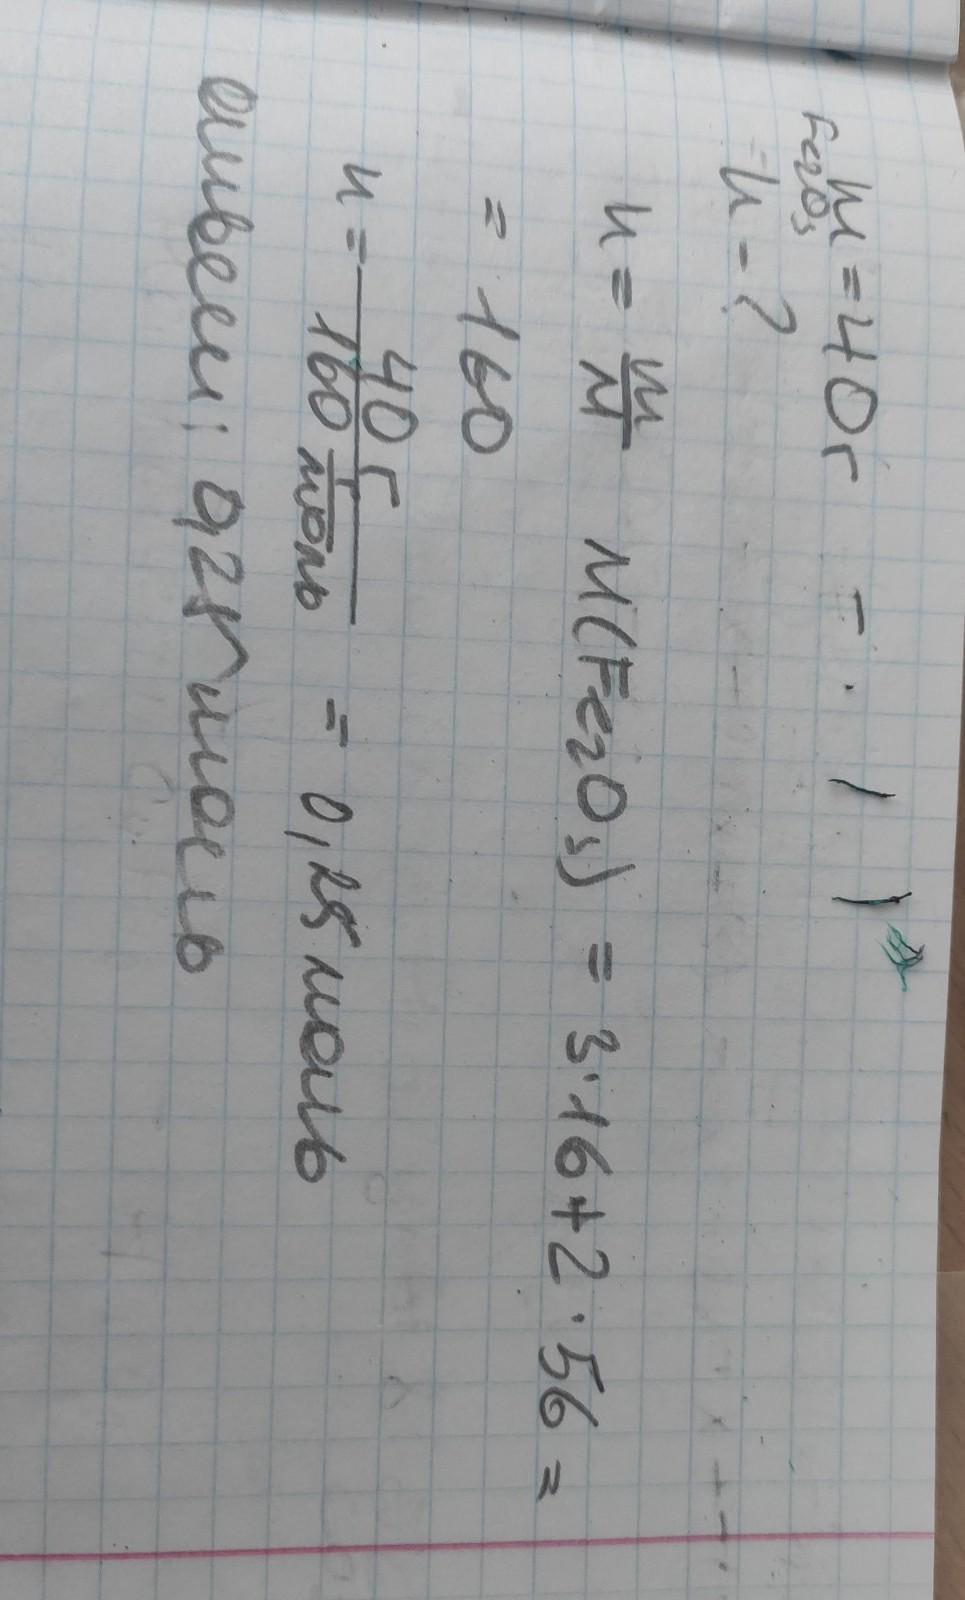 m = 40г
Fe2O3
n - ?
n = m/M M(Fe2O3) = 3·16+2·56 =
= 160
n = 40г / 160 г/моль = 0,25 моль
ответ: 0,25 моль